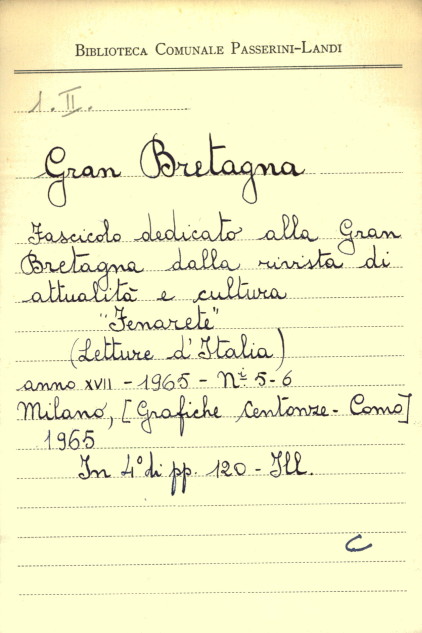 BIBLIOTECA COMUNALE PASSERINI-LANDI
1. II.
Gran Bretagna
Fascicolo dedicato alla Gran
Bretagna dalla rivista di
attualità e cultura
"Fenarete"
(Letture d'Italia)
anno XVII - 1965 - Ni 5-6
Milano, [Grafiche Centonze - Como]
1965
In 4° di pp. 120 - Ill.
C